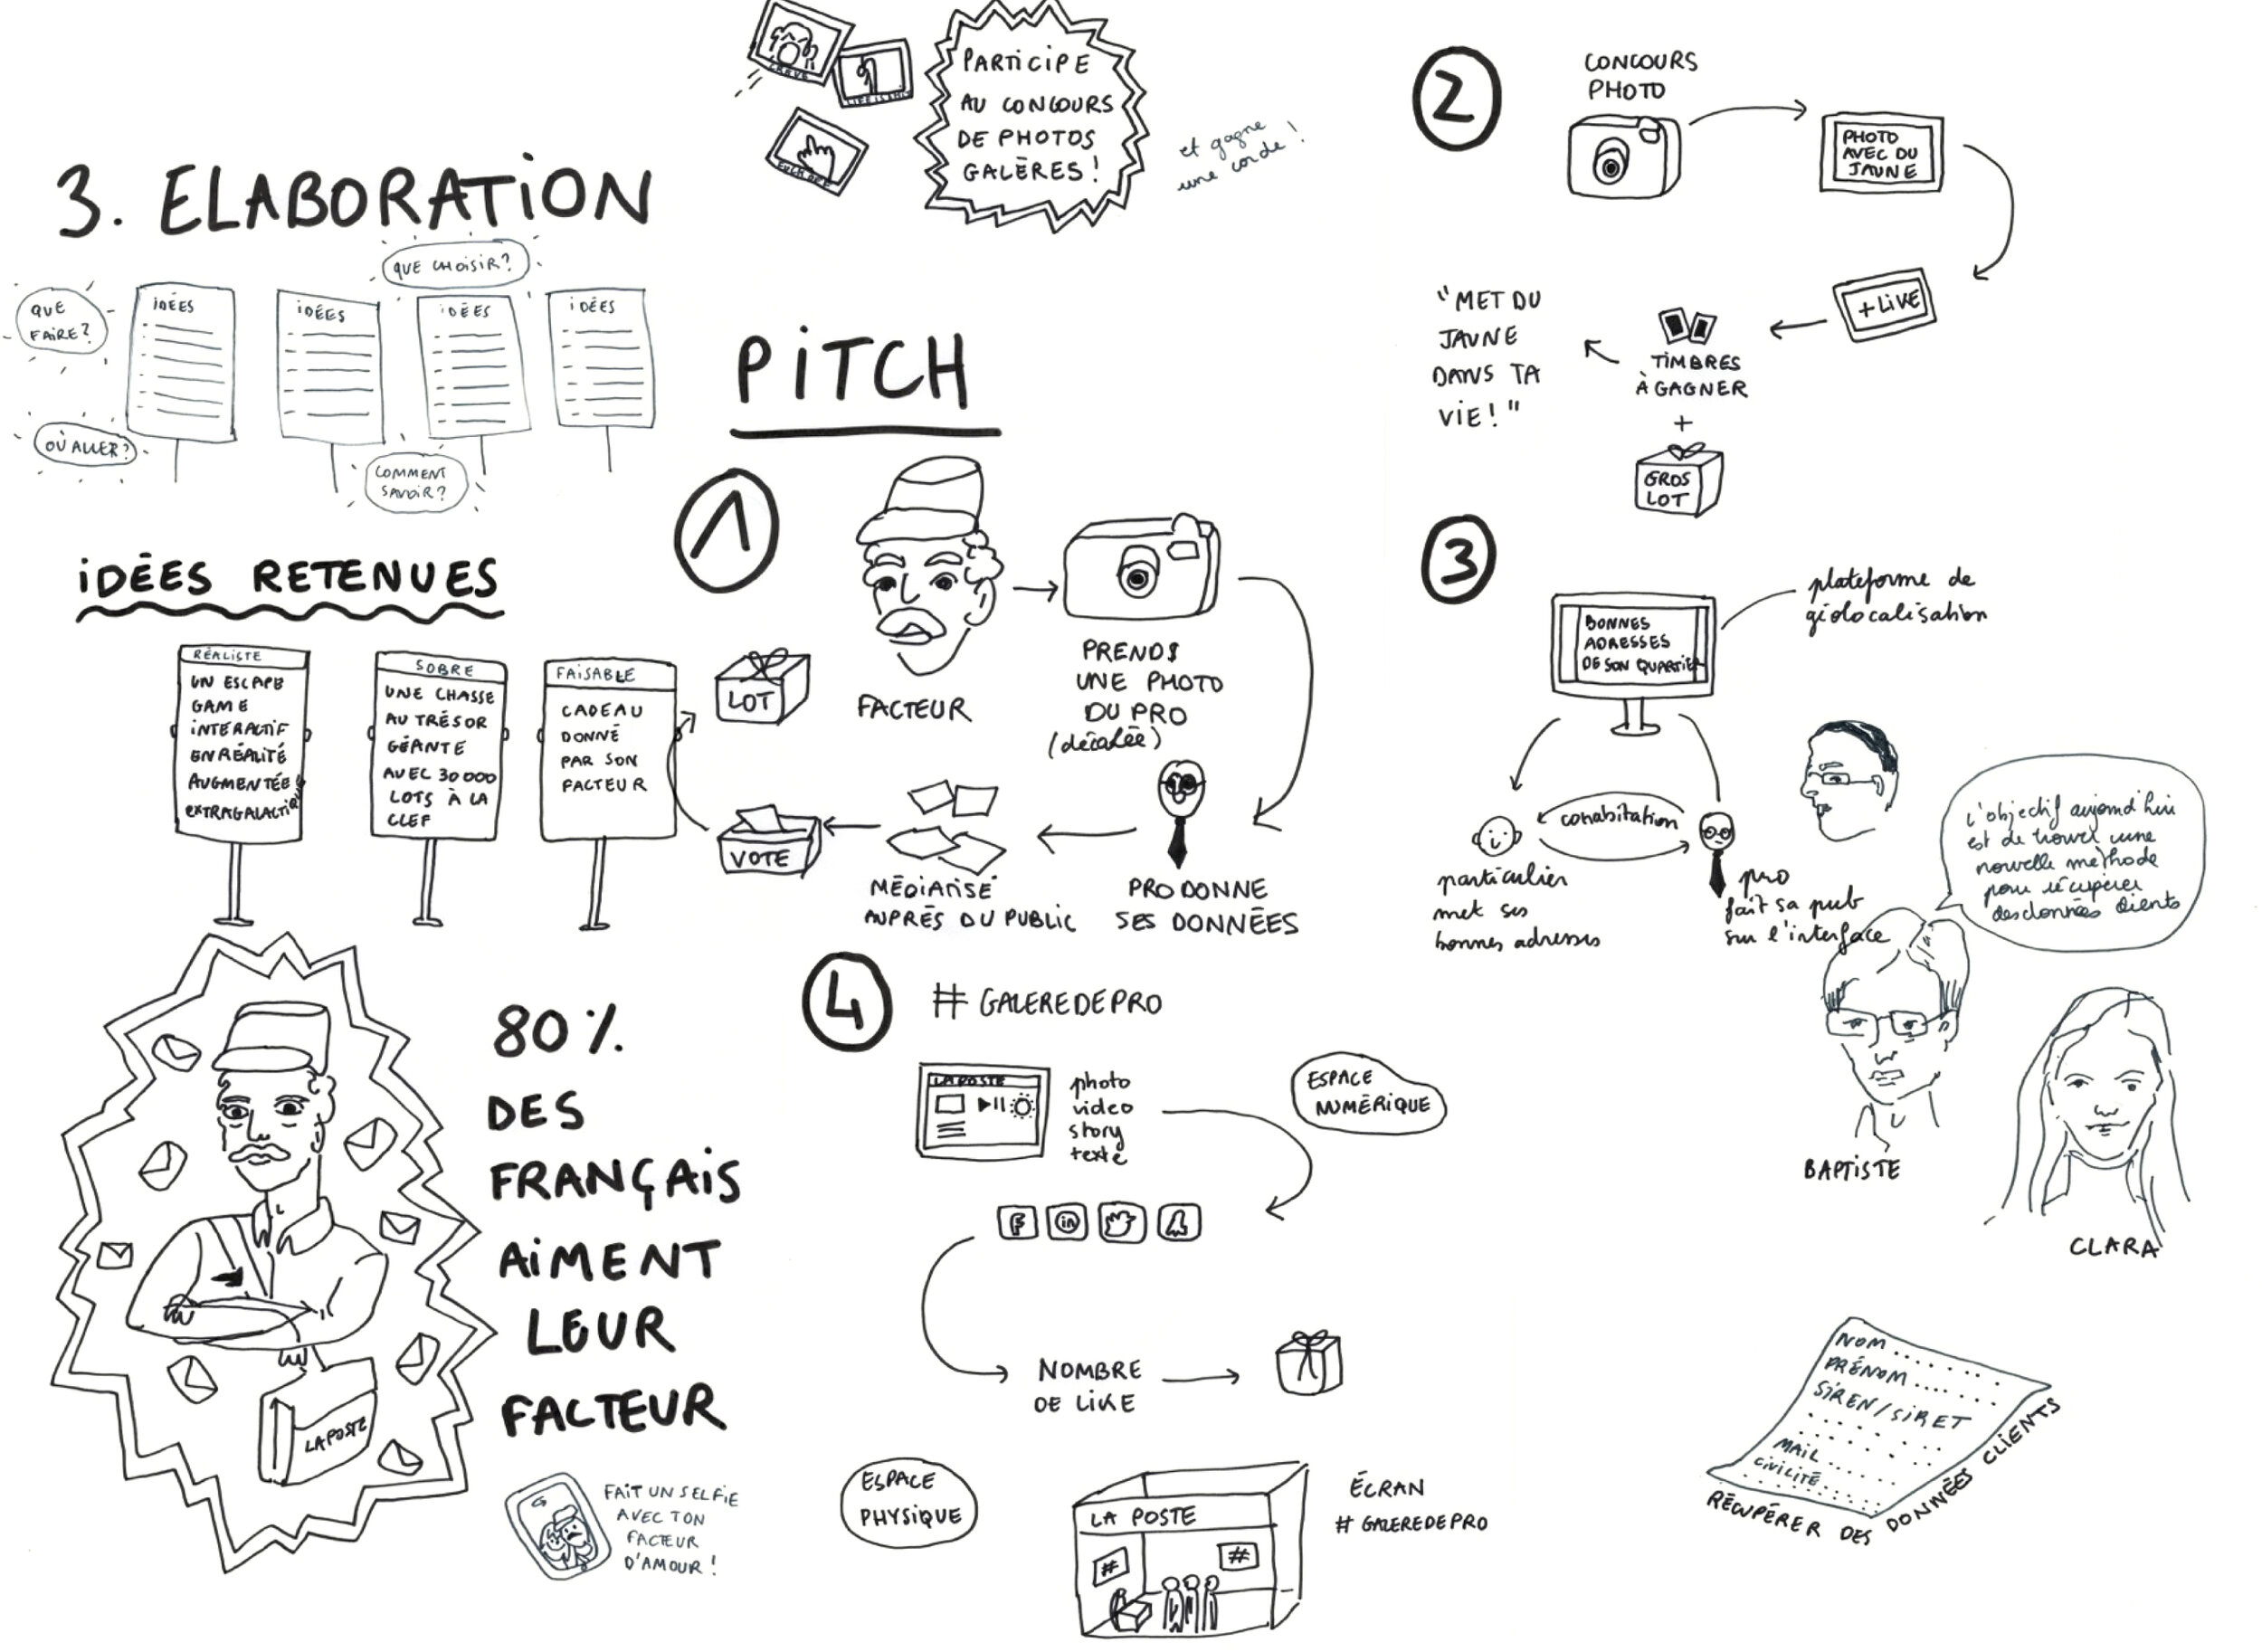 PARTICIPE
AU CONCOURS
DE PHOTOS
GALÈRES !
et gagne
une corde !
3. ELABORATION
QUE CHOISIR ?
QUE
FAIRE ?
IDÉES
IDÉES
IDÉES
IDÉES
OÙ ALLER ?
COMMENT
SAVOIR ?
IDÉES RETENUES
RÉALISTE
UN ESCAPE
GAME
INTERACTIF
EN RÉALITÉ
AUGMENTÉE
EXTRAGALACTIQUE
SOBRE
UNE CHASSE
AU TRÉSOR
GÉANTE
AVEC 30 000
LOTS À LA
CLEF
FAISABLE
CADEAU
DONNÉ
PAR SON
FACTEUR
80 %
DES
FRANÇAIS
AIMENT
LEUR
FACTEUR
LA POSTE
FAIT UN SELFIE
AVEC TON
FACTEUR
D'AMOUR !
PITCH
1
FACTEUR
PRENDS
UNE PHOTO
DU PRO
(décalée)
PRO DONNE
SES DONNÉES
MÉDIATISÉ
AUPRÉS DU PUBLIC
VOTE
LOT
2
CONCOURS
PHOTO
PHOTO
AVEC DU
JAUNE
+ LIKE
TIMBRES
À GAGNER
+
GROS
LOT
"MET DU
JAUNE
DANS TA
VIE ! "
3
plateforme de
géolocalisation
BONNES
ADRESSES
DE SON QUARTIER
cohabitation
particulier
met ses
bonnes adresses
pro
fait sa pub
sur l'interface
L'objectif aujourd'hui
est de trouver une
nouvelle méthode
pour récupérer
des données clients
BAPTISTE
CLARA
4
# GALEREDEPRO
LA POSTE
photo
video
story
texte
ESPACE
NUMÉRIQUE
f
in
NOMBRE
DE LIKE
ESPACE
PHYSIQUE
LA POSTE
#
#
ÉCRAN
# GALEREDEPRO
NOM
PRÉNOM
SIREN/SIRET
MAIL
CIVILITÉ
RÉCUPÉRER DES DONNÉES CLIENTS